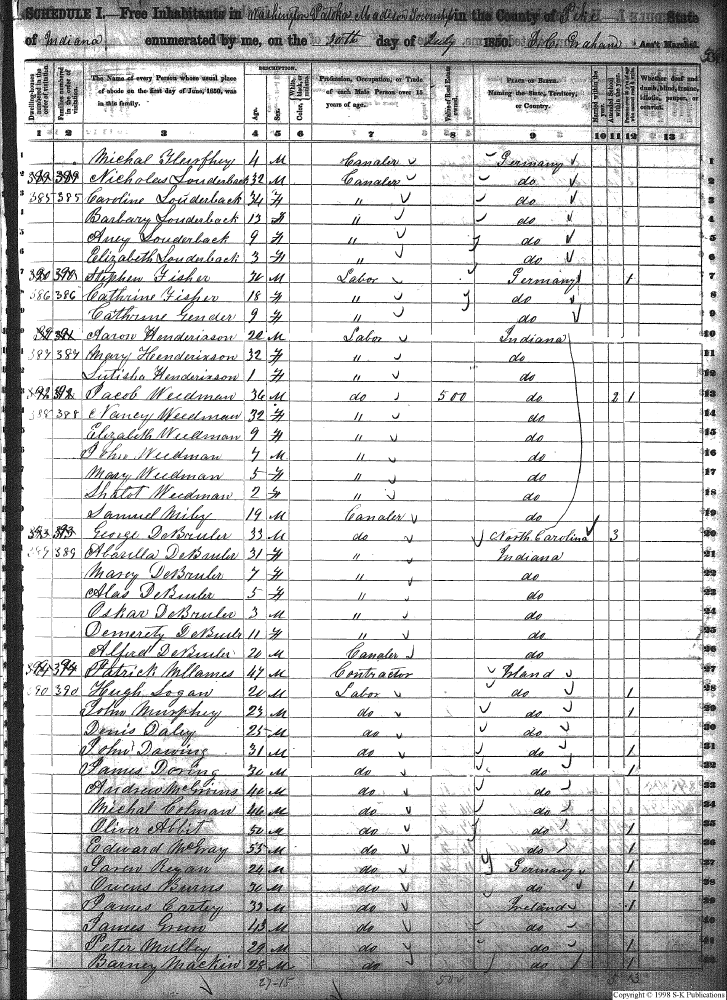 SCHEDULE I.—Free Inhabitants in Washington Patoka Madison Township in the County of Pike State
of Indiana enumerated by me, on the 20th day of July 1850. Ass't Marshal.
Dwelling-houses numbered in the order of visitation.
Families numbered in the order of visitation.
The Name of every Person whose usual place of abode on the first day of June, 1850, was in this family.
DESCRIPTION.
Age.
Sex.
Color, White, black, or mulatto.
Profession, Occupation, or Trade of each Male Person over 15 years of age.
Value of Real Estate owned.
PLACE OF BIRTH. Naming the State, Territory, or Country.
Married within the year.
Attended School within the year.
Whether deaf and dumb, blind, insane, idiotic, pauper, or convict.
1 2 3 4 5 6 7 8 9 10 11 12 13
Michal Murphey 4 M Canaler Germany
Nicholas Louderback 32 M Canaler do
385 385 Caroline Louderback 34 F " do
Barbary Louderback 13 F " do
Aney Louderback 9 F " do
Elizabeth Louderback 3 F " do
Stephen Fisher 30 M Labor Germany 1
386 386 Cathrine Fisher 18 F " do
Cathrine Gender 9 F " do
Aaron Henderixson 22 M Labor Indiana
387 387 Mary Henderixson 32 F " do
Lutisha Henderixson 1 F " do
Jacob Weedman 36 M do 500 do 2 1
388 388 Nancy Weedman 32 F " do
Elizabeth Weedman 9 F " do
John Weedman 7 M " do
Mary Weedman 5 F " do
Shalot Weedman 2 F " do
Samuel Miley 19 M Canaler do
George DeBruler 33 M do North Carolina 3
389 389 Abarilla DeBruler 31 F " Indiana
Marey DeBruler 7 F " do
Alas DeBruler 5 F " do
Oskar DeBruler 3 M " do
Demerety DeBruler 11 F " do
Alfred DeBruler 20 M Canaler do
Patrick McJames 47 M Contractor Irland
390 390 Hugh Logan 20 M Labor do 1
John Murphey 23 M do do 1
Denis Daley 25 M do do
John Dawing 31 M do do 1
James Doring 30 M do do 1
Andrew McGinins 40 M do do
Michal Colman 46 M do do
Oliver Abbit 50 M do do 1
Edward McGray 55 M do do 1
Regan 24 M do Germany 1
Owens Burns 30 M do do 1
James Cartey 33 M do Ireland 1
James 43 M do do
Peter Mulley 29 M do do 1
Barney Mackin 28 M do do
27-15 500
Copyright © 1998 S-K Publications